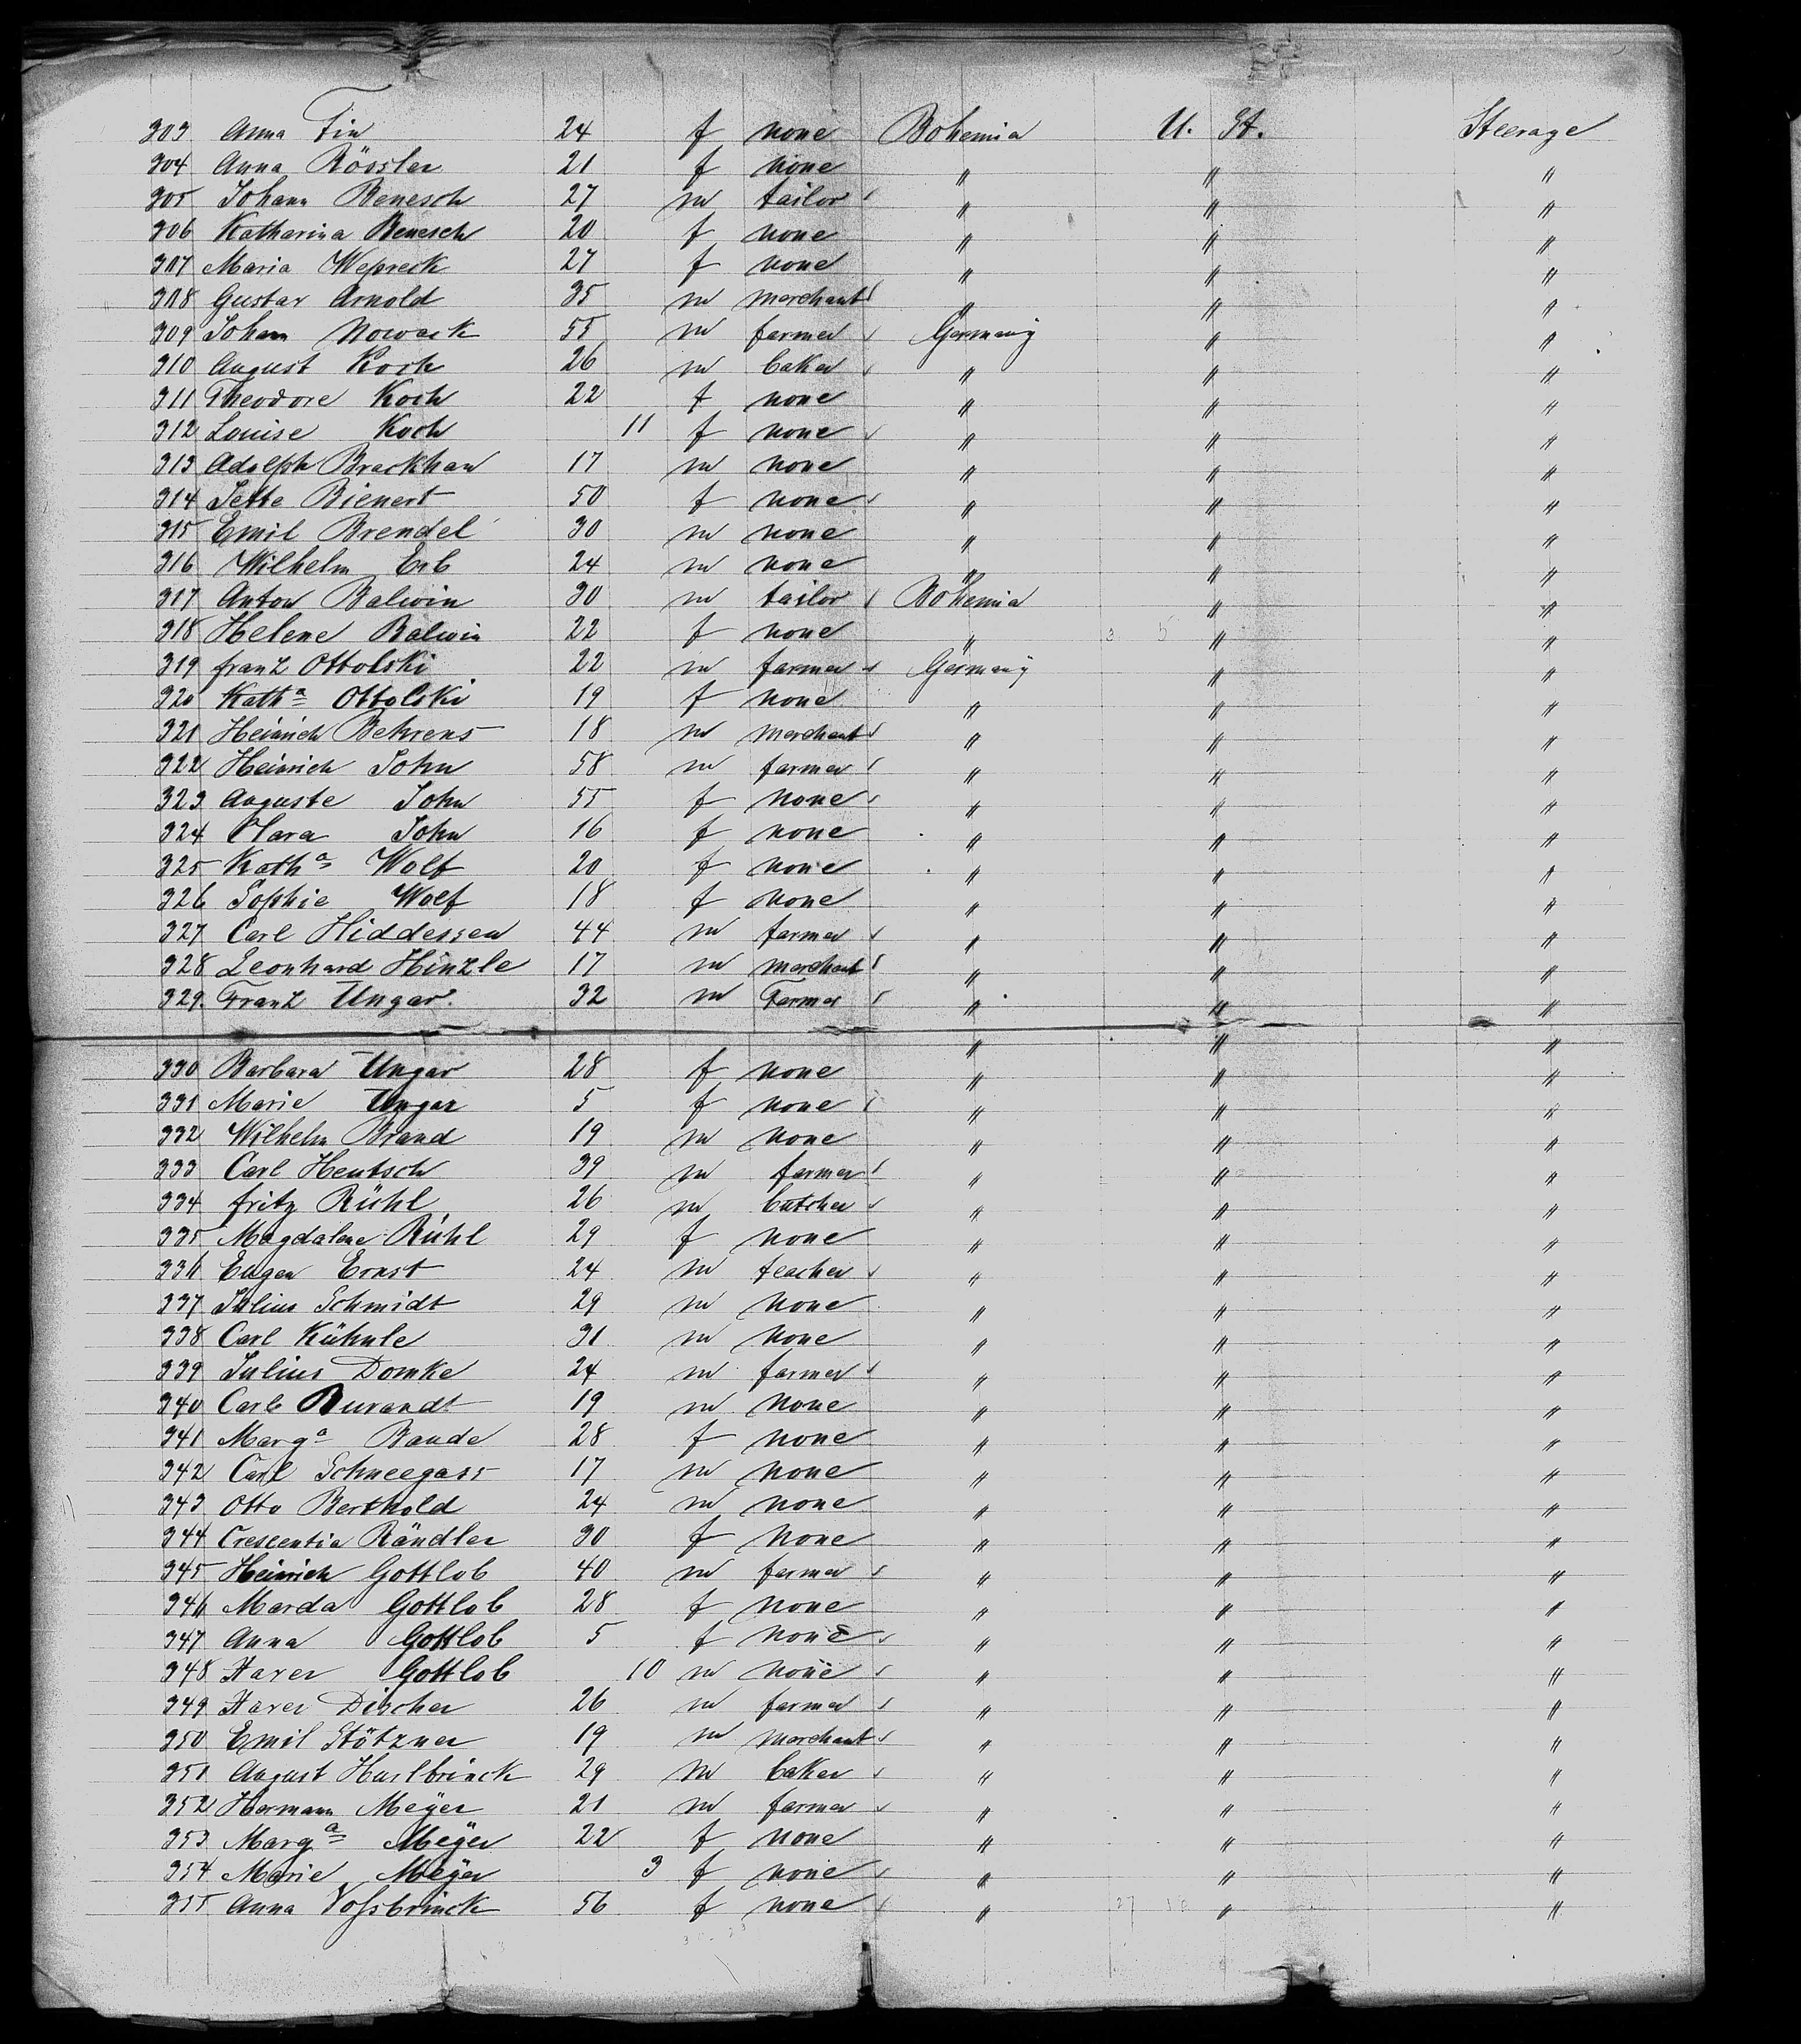 303 Anna Fin 24 f none Bohemia U. St. Steerage
304 Anna Rössler 21 f none " " "
305 Johann Benesch 27 m tailor " " "
306 Katharina Benesch 20 f none " " "
307 Maria Wepreck 27 f none " " "
308 Gustav Arnold 35 m merchant " " "
309 Johann Nowack 55 m farmer Germany " "
310 August Koch 26 m baker " " "
311 Theodore Koch 22 f none " " "
312 Louise Koch 11 f none " " "
313 Adolph Brackhan 17 m none " " "
314 Jette Bienert 50 f none " " "
315 Emil Brendel 30 m none " " "
316 Wilhelm Erb 24 m none " " "
317 Anton Balwin 30 m tailor Bohemia " "
318 Helene Balwin 22 f none " " "
319 franz Ottolski 22 m farmer Germany " "
320 Katha Ottolski 19 f none " " "
321 Heinrich Behrens 18 m merchant " " "
322 Heinrich John 58 m farmer " " "
323 Auguste John 55 f none " " "
324 Clara John 16 f none " " "
325 Katha Wolf 20 f none " " "
326 Sophie Wolf 18 f none " " "
327 Carl Hiddessen 44 m farmer " " "
328 Leonhard Hinzle 17 m merchant " " "
329. Franz Ungar. 32 m Farmer " " "
" " "
330 Barbara Ungar 28 f none " " "
331 Marie Ungar 5 f none " " "
332 Wilhelm Brand 19 m none " " "
333 Carl Hentsch 39 m farmer " " "
334 fritz Rühl 26 m butcher " " "
335 Magdalene Rühl 29 f none " " "
336 Eugen Ernst 24 m teacher " " "
337 Julius Schmidt 29 m none " " "
338 Carl Kühnle 31 m none " " "
339 Julius Domke 24 m farmer " " "
340 Carl Burandt 19 m none " " "
341 Marga Baude 28 f none " " "
342 Carl Schneegass 17 m none " " "
343 Otto Berthold 24 m none " " "
344 Crescentia Rändler 30 f none " " "
345 Heinrich Gottlob 40 m farmer " " "
346 Marda Gottlob 28 f none " " "
347 Anna Gottlob 5 f none " " "
348 Xaver Gottlob 10 m none " " "
349 Xaver Discher 26 m farmer " " "
350 Emil Stötzner 19 m merchant " " "
351 August Huslbrinck 29 m baker " " "
352 Hermann Meÿer 21 m farmer " " "
353 Marga Meÿer 22 f none " " "
354 Marie Meÿer 3 f none " " "
355 Anna Vossbrinck 56 f none " " "